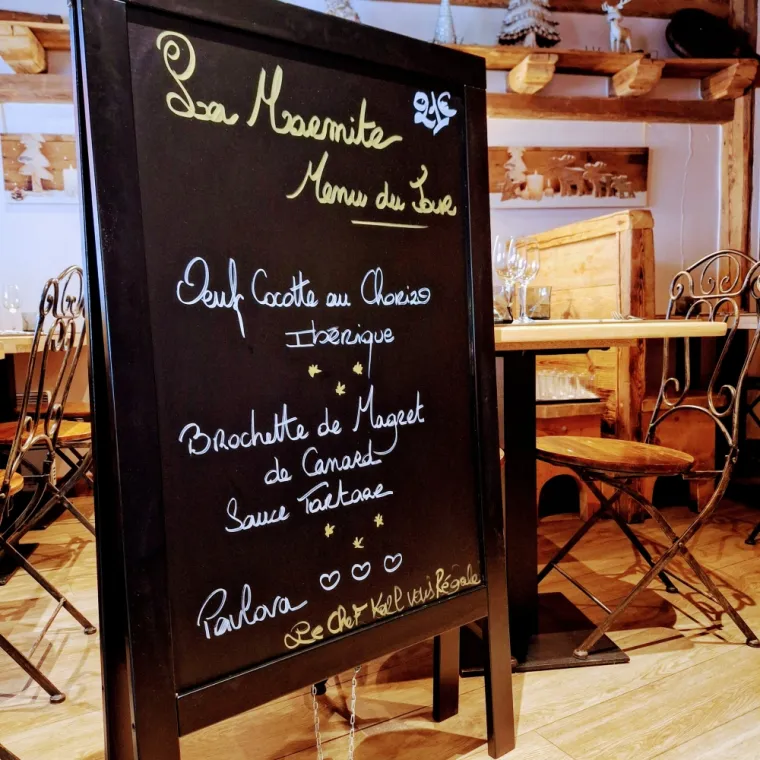 La Marmite
21€
Menu du Jour
Oeuf Cocotte au Chorizo
Ibérique
Brochette de Magret
de Canard
Sauce Tartare
Pavlova
Le Chef Kell vous Régale